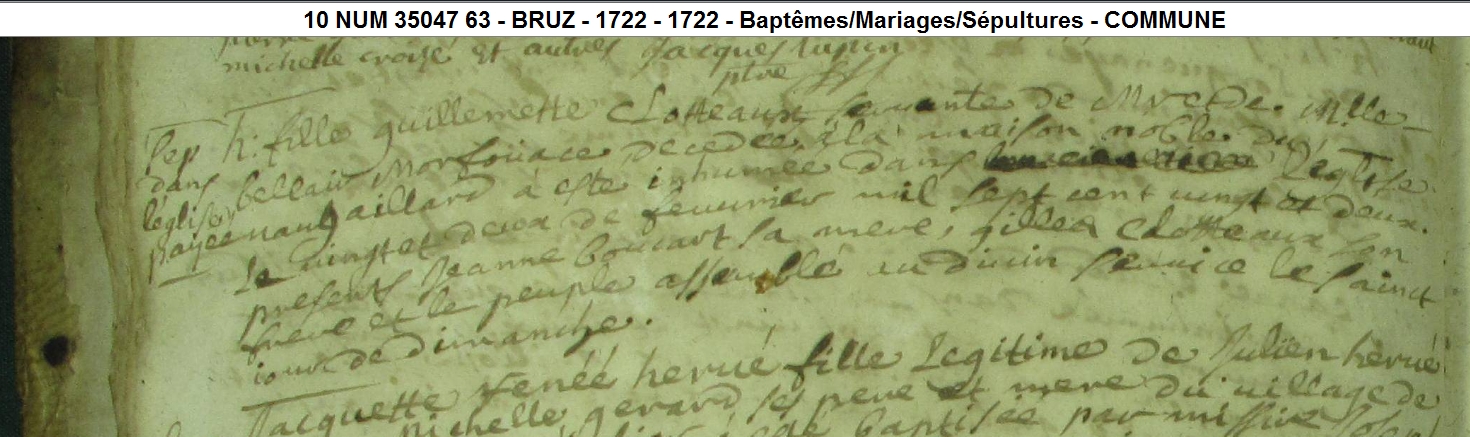 10 NUM 35047 63 - BRUZ - 1722 - 1722 - Baptêmes/Mariages/Sépultures - COMMUNE
michelle croisé et autres Jacques
ptre
Sep h. fille guillemette Clotteaux servante de Mr et De. Mlle
dans bellair Morfouace decedée à la maison noble du
léglise naugaillard à este inhumée dans L'église
payée
Le vingt et deux de feuvrier mil sept cent vingt et deux.
presents Jeanne boucart sa mere, gilles Clotteaux son
frere et le peuple assemblé au divin service le sainct
iour de dimanche.
Jacquette renée hervé fille Legitime de Julien hervé
Michelle gerard ses pere et mere du village de
baptisée par